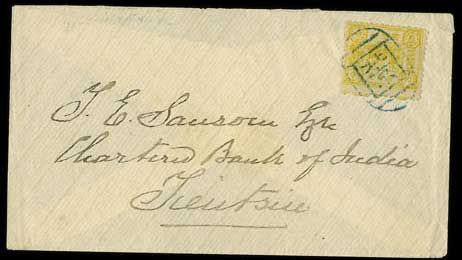 T. E. Sansom Esqre
Chartered Bank of India
Tientsin